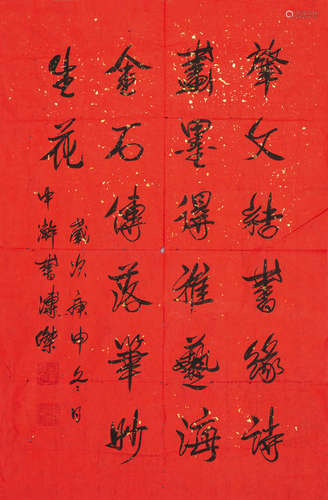 肇文結書緣詩
畫墨得雅藝海
金石傳落筆妙
生花
歲次庚申冬月
中澣書溥傑